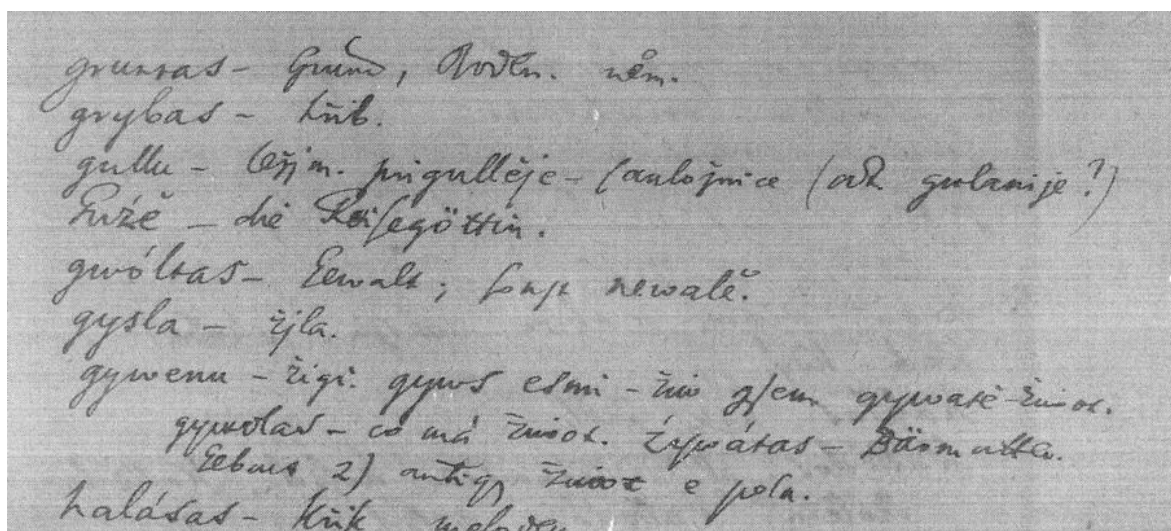 gruntas - Grund, Boden. něm.
grybas - hřib.
gullu - ležjm. prigullěje - (auložnice (ak. gulanije?)
Gužě - die Reisegöttin.
gwóltas - Gewalt; newalě.
gysla - žjla.
gywenu - žigi. gyws esmi - žiw gsem gywatě - žiwot.
gywolas - co má žiwot. žywátas - Bärmutter.
2) žiwot e pola.
halásas - křik